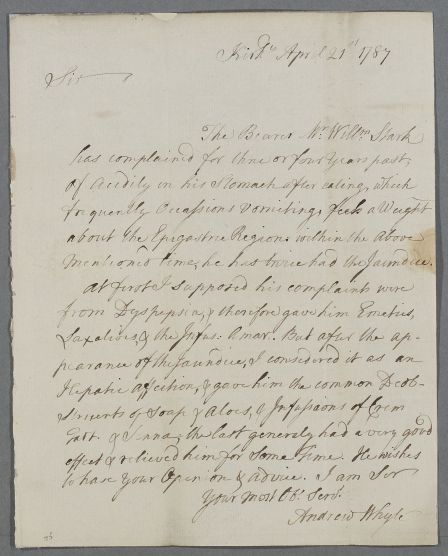 Kirkdy April 21st 1787
Sir
The Bearer Mr. Willm. Stark
has complained for three or four Years past,
of Acidity in his Stomach after eating, which
frequently Occassions Vomiting, feels a Weight
about the Epigastric Region: within the Above
Mentioned time, he has twice had the Jaundice.
At first I supposed his complaints were
from Dyspepsia, & therefore gave him Emetics,
Laxatives, & the Infus: Amar: But after the ap-
pearance of the Jaundice, I considered it as an
Hepatic affection, & gave him the common Deob-
struents of Soap & Aloes, & Infusions of Crem
Tart. & Senna; the last generaly had a very good
effect & relieved him for Some time. He wishes
to have Your Opinion & Advice. I am Sir
Your Most Ob. Servt.
Andrew Whyte